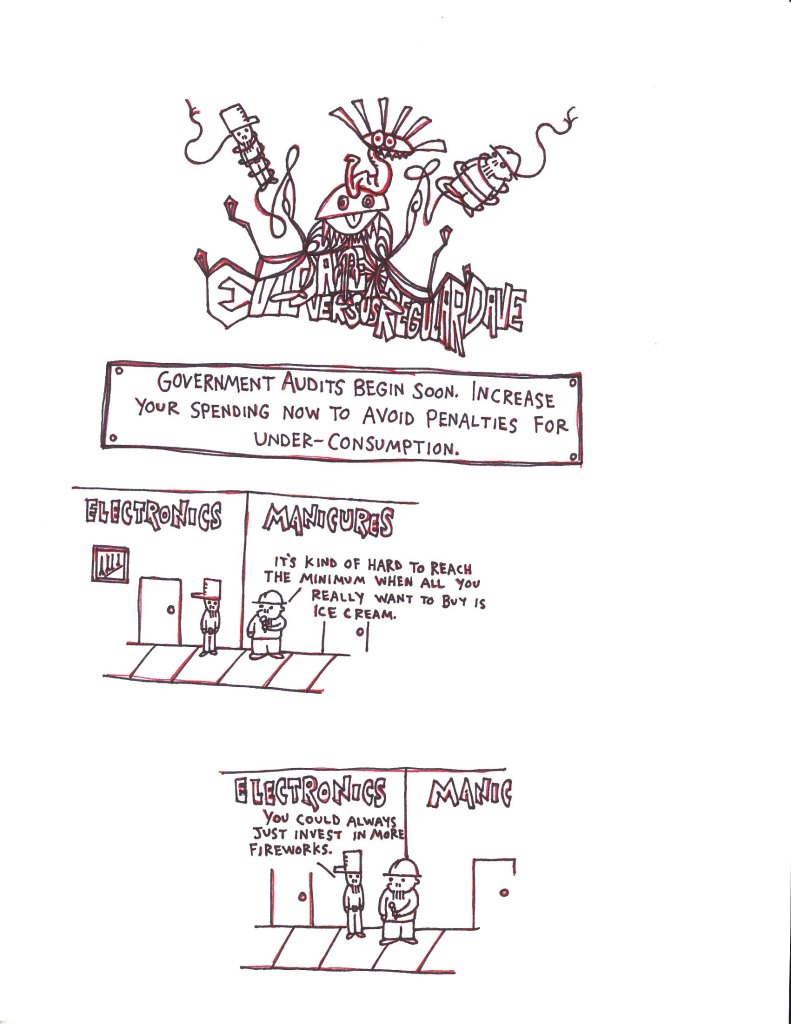 EVIL DAVE
VERSUS REGULAR DAVE
GOVERNMENT AUDITS BEGIN SOON. INCREASE
YOUR SPENDING NOW TO AVOID PENALTIES FOR
UNDER-CONSUMPTION.
ELECTRONICS MANICURES
IT'S KIND OF HARD TO REACH
THE MINIMUM WHEN ALL YOU
REALLY WANT TO BUY IS
ICE CREAM.
ELECTRONICS MANIC
YOU COULD ALWAYS
JUST INVEST IN MORE
FIREWORKS.